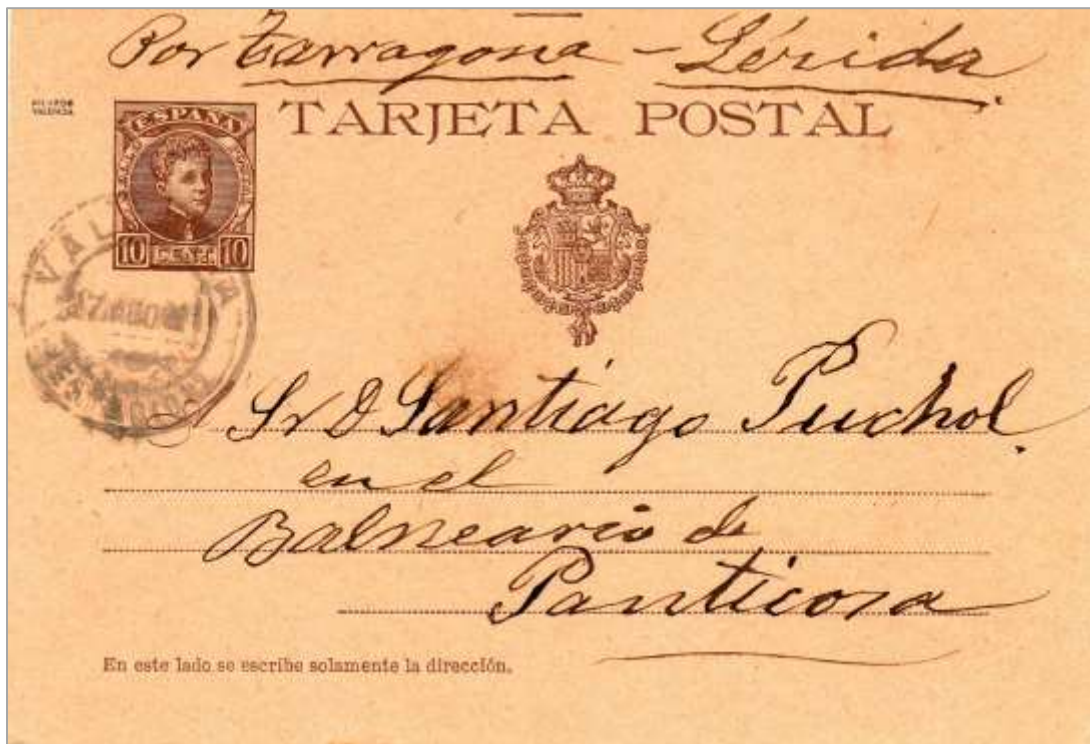 Por Tarragona - Lérida
TARJETA POSTAL
VALENCIA
ESPAÑA
10 CENT. 10
Sr D Santiago Puchol
en el
Balneario de
Panticosa
En este lado se escribe solamente la dirección.